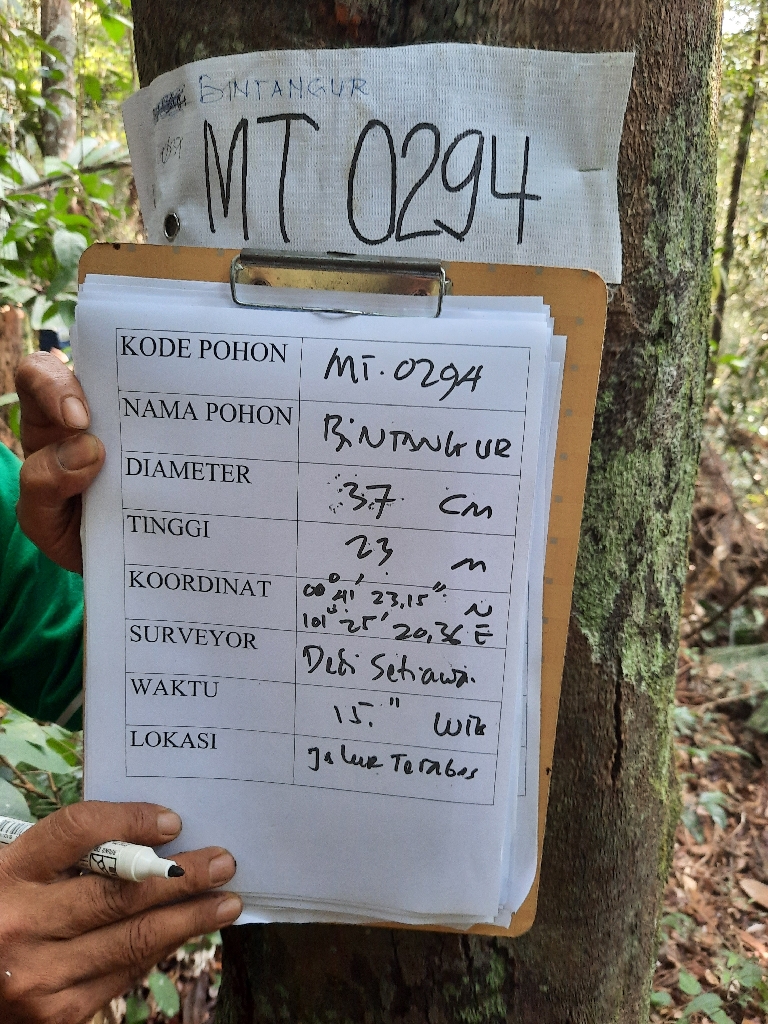 BINTANGUR
MT 0294
KODE POHON MT. 0294
NAMA POHON BiNTANGUR
DIAMETER 37 Cm
TINGGI 23 m
KOORDINAT 00° 41' 23,15" N
101° 25' 20,36 E
SURVEYOR Debi Setiawan
WAKTU 15." WIB
LOKASI Jalur Terabas